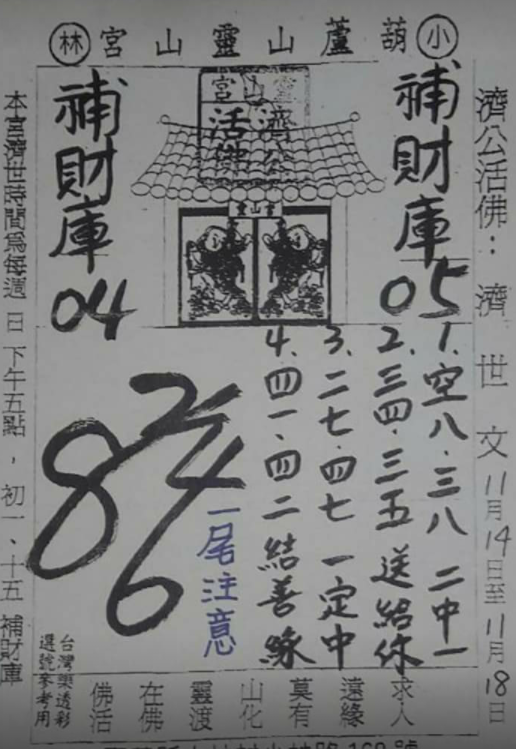 小林
葫蘆山靈山宮
濟公活佛：濟世文 11月14日至11月18日
補財庫
05
補財庫
04
宮山靈
濟公
活佛
靈山宮
1. 空八.三八 二中一
2. 三四.三五 送給你
3. 二七.四七 一定中
4. 四一.四二 結善緣
一尾注意
2
4
8
6
求人
遠緣
莫有
山化
靈渡
在佛
佛活
台灣樂透彩
選號參考用
本宮濟世時間為每週 日 下午五點，初一、十五 補財庫